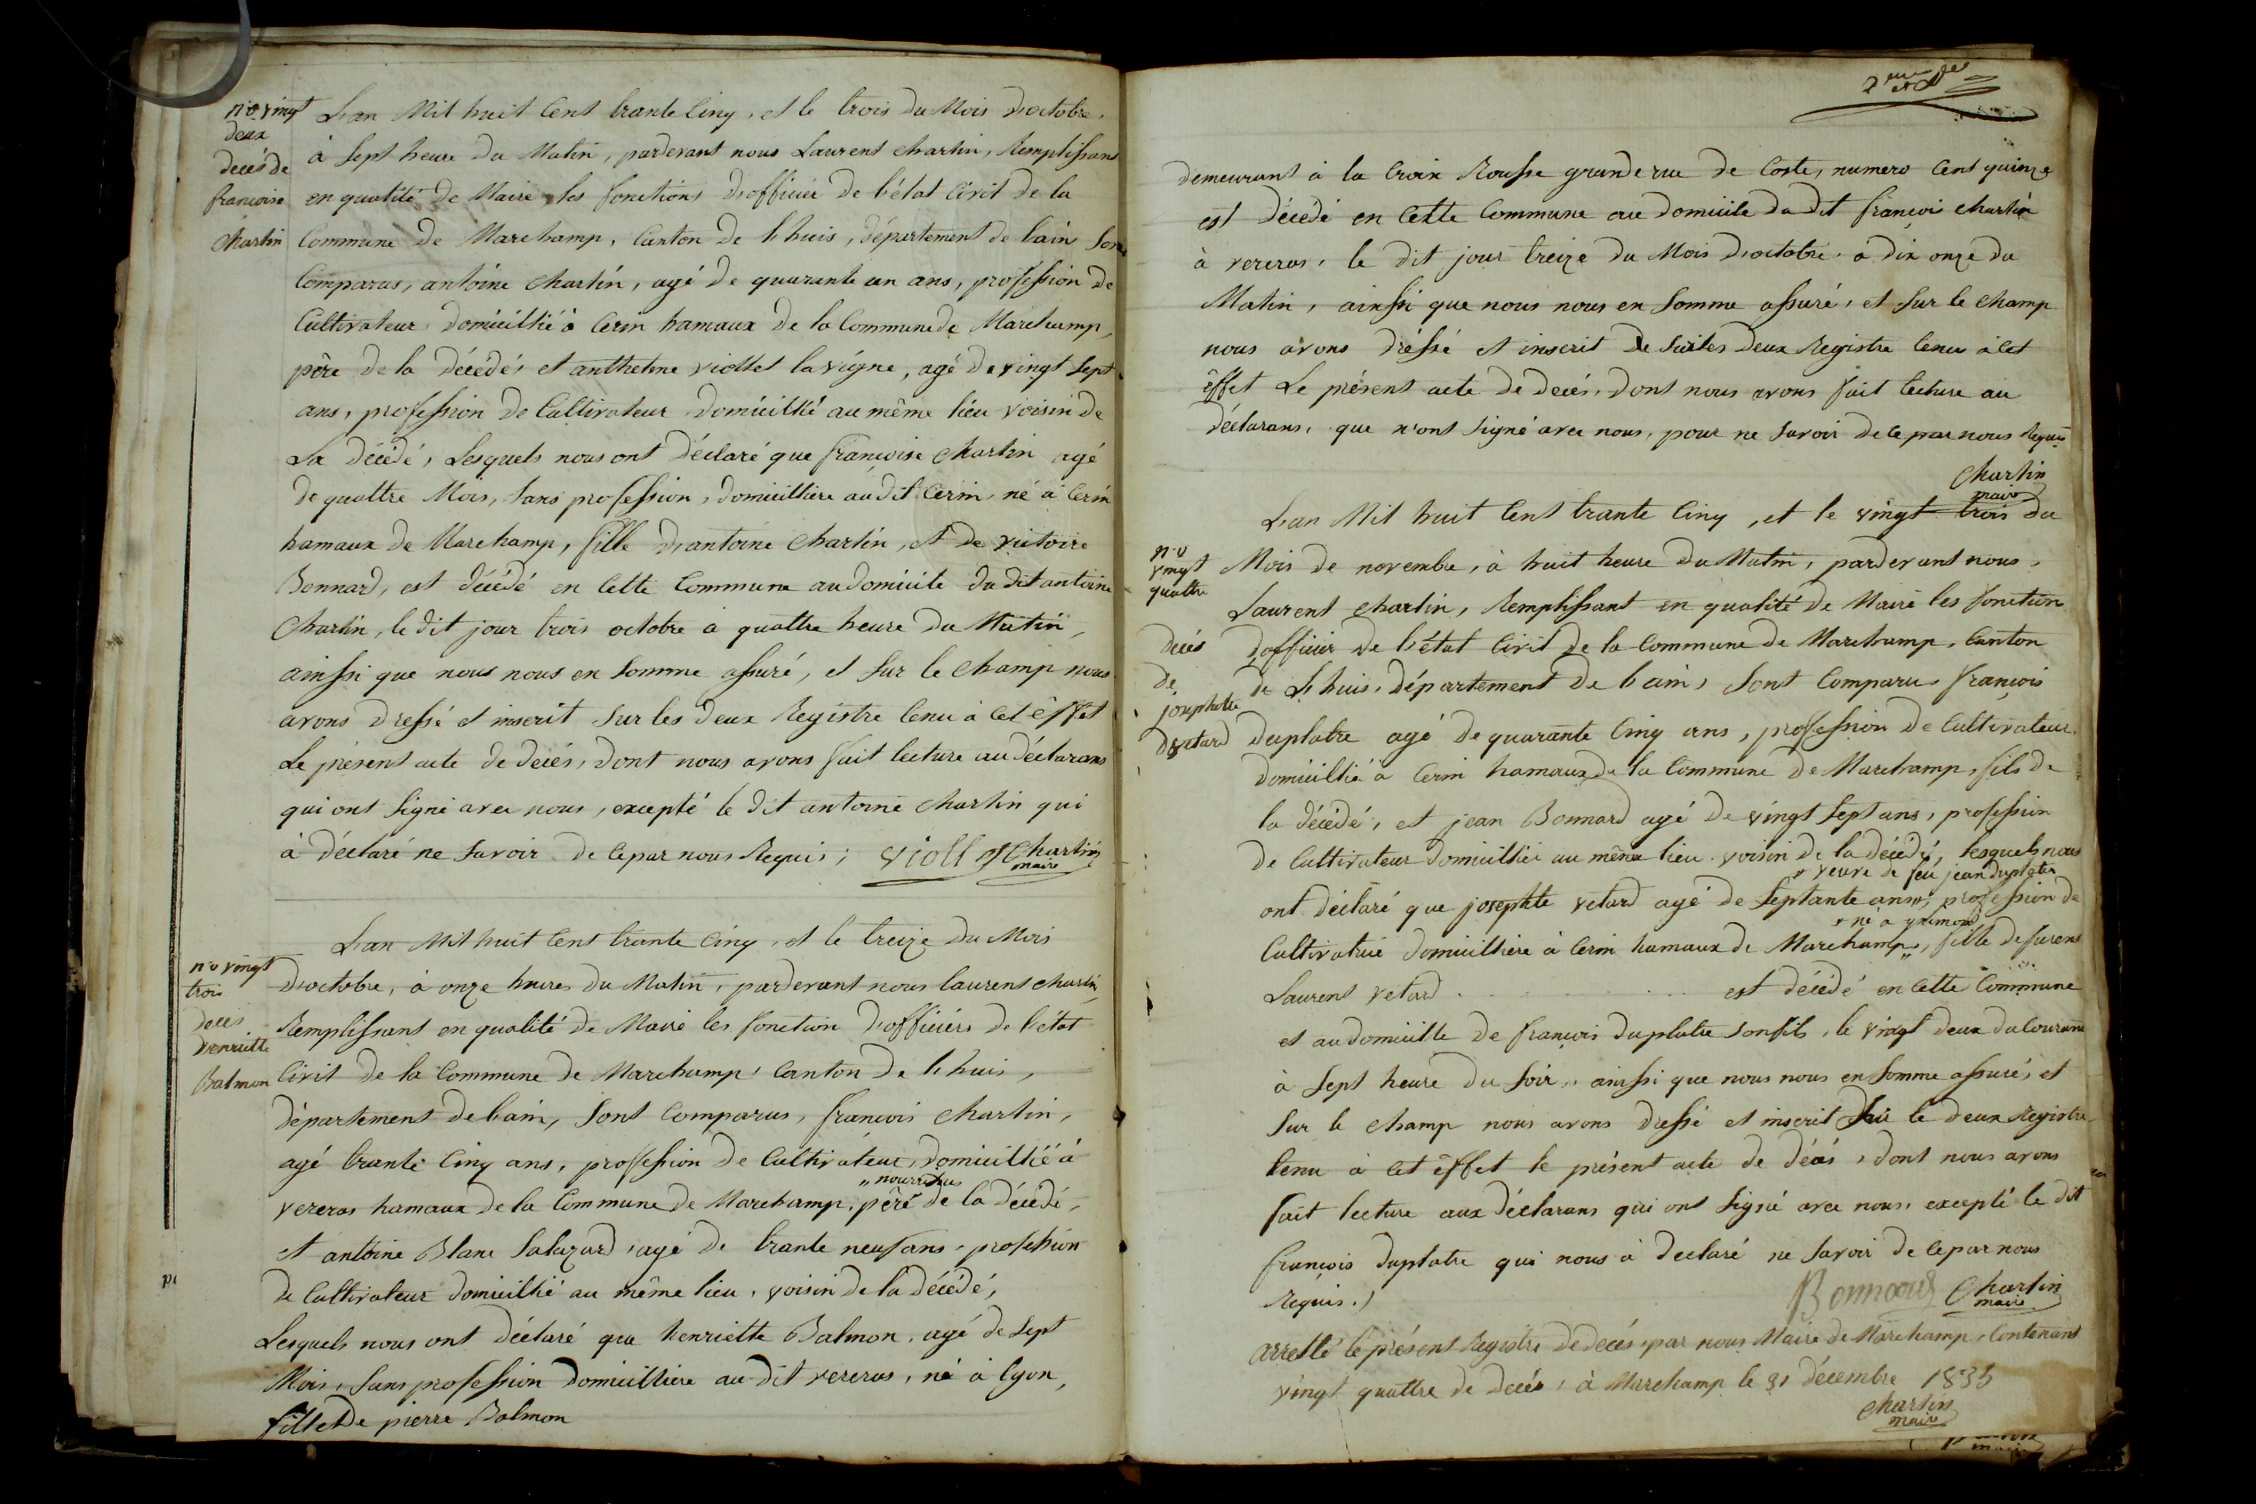 n.o vingt
deux
decés de
francoise
Charlin
L'an Mil huit Cent trante Cinq, et le trois du Mois d'octobre,
à Sept heure du Matin, pardevant nous Laurent Charlin, Remplissant
en qualité de Maire les fonctions d'officier de l'état Civil de la
Commune de Marchamp, Canton de l'huis, département de l'ain Sont
Comparus, antoine Charlin, agé de quarante un ans, profession de
Cultivateur domicillié à Cerin hamaux de la Commune de Marchamp,
père de la décédé, et anthelme viollet lavigne, agé de vingt Sept
ans, profession de Cultivateur domicillié au même lieu voisin de
La décédé, Lesquels nous ont déclaré que françoise Charlin agé
de quattre Mois, Sans profession, domicilliere au dit Cerin, né à Cerin
hamaux de Marchamp, fille d'antoine Charlin, et de victoire
Bonnard, est décédé en Cette Commune au domicile du dit antoine
Charlin, le dit jour trois octobre à quattre heure du Matin,
ainssi que nous nous en Somme assuré, et Sur le Champ nous
avons dressé et inscrit Sur les deux Registre tenu à Cet èffet
Le présent acte de decés, dont nous avons fait lecture au déclarans
qui ont Signé avec nous, excepté le dit antoine Charlin qui
à déclaré ne Savoir de Ce par nous Requis; violl Charlin
maire
n.o vingt
trois
deces
d'enriette
Balmon
L'an Mil huit Cent trante Cinq, et le treize du Mois
d'octobre, à onze heures du Matin, pardevant nous laurent Charlin,
Remplissant en qualité de Maire les fonction d'officiérs de l'état
Civil de la Commune de Marchamp, Canton de l'huis,
département de l'ain, Sont Comparus, françois Charlin,
agé trante Cinq ans, profession de Cultivateur, domicillié à
vereras hamaux de la Commune de Marchamp, père de la décédé,
et antoine Blanc Salazard, agé de trante neuf ans, profession
de Cultivateur domicillié au même lieu, voisin de la décédé,
Lesquels nous ont déclaré que henriette Balmon, agé de Sept
Mois, Sans profession domicilliere au dit vereras, né à lyon,
fille de pierre Balmon
demeurant à la Croix Rousse grande rue de Coste, numero Cent quinze
est décédé en Cette Commune au domicile du dit françois Charlin
à vereras, le dit jour treize du Mois d'octobre, à dix onze du
Matin, ainssi que nous nous en Somme assuré, et Sur le Champ
nous avons dréssé et inscrit Sur les deux Registre tenu à Cet
èffet Le présent acte de decés, dont nous avons fait lecture au
déclarans, que n'ont Signé avec nous, pour ne Savoir de Ce par nous Requis
Charlin
maire
n.o
vingt
quattre
décés
de
josephette
vetard
L'an Mil huit Cent trante Cinq, et le vingt trois du
Mois de novembre, à huit heure du Matin, pardevant nous,
Laurent Charlin, Remplissant en qualité de Maire les fonction
d'officier de l'état Civil de la Commune de Marchamp, Canton
de L'huis, département de l'ain, Sont Comparus françois
duplatre agé de quarante Cinq ans, profession de Cultivateur,
domicillié à Cerin hamaux de la Commune de Marchamp, fils de
la décédé, et jean Bonnard agé de vingt Sept ans, profession
de Cultivateur domicillié au même lieu voisin de la décédé, lesquels nous
veuve de feu jean duplatre
ont déclaré que josephte vetard agé de Septante ans, profession de
né à
Cultivatrice domicilliere à Cerin hamaux de Marchamp, fille de
Laurent vetard est décédé en Cette Commune
et au domicille de françois duplatre Son fils, le vingt deux du Courant
à Sept heure du Soir, ainssi que nous nous en Somme assuré, et
Sur le Champ nous avons dressé et inscrit Sur le deux Registre
tenu à Cet èffet le présent acte de décés, dont nous avons
fait lecture aux déclarans qui ont Signé avec nous, excepté le dit
françois duplatre qui nous à declaré ne Savoir de Ce par nous
Requis.
Bonnard Charlin
maire
arretté le présent Registre de decés, par nous Maire de Marchamp, Contenant
vingt quattre de decés, à Marchamp le 31 décembre 1835
Charlin
maire